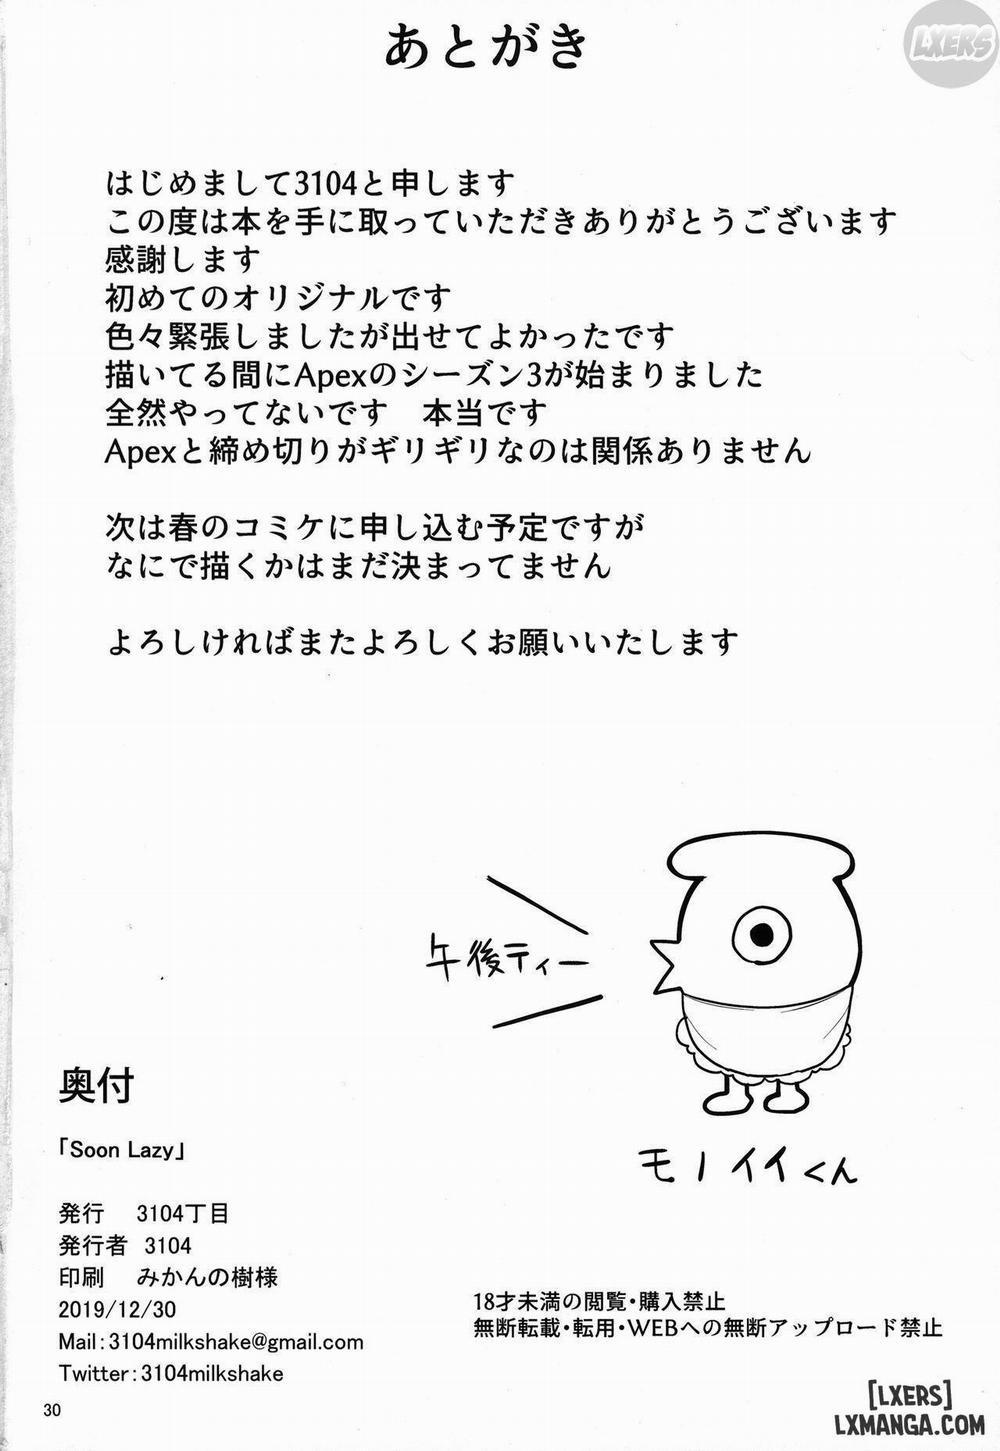 LXERS
あとがき
はじめまして3104と申します
この度は本を手に取っていただきありがとうございます
感謝します
初めてのオリジナルです
色々緊張しましたが出せてよかったです
描いてる間にApexのシーズン3が始まりました
全然やってないです　本当です
Apexと締め切りがギリギリなのは関係ありません
次は春のコミケに申し込む予定ですが
なにで描くかはまだ決まってません
よろしければまたよろしくお願いいたします
午後ティー
モノイイくん
奥付
「Soon Lazy」
発行　3104丁目
発行者　3104
印刷　みかんの樹様
2019/12/30
Mail：3104milkshake@gmail.com
Twitter：3104milkshake
18才未満の閲覧・購入禁止
無断転載・転用・WEBへの無断アップロード禁止
30
[LXERS]
LXMANGA.COM